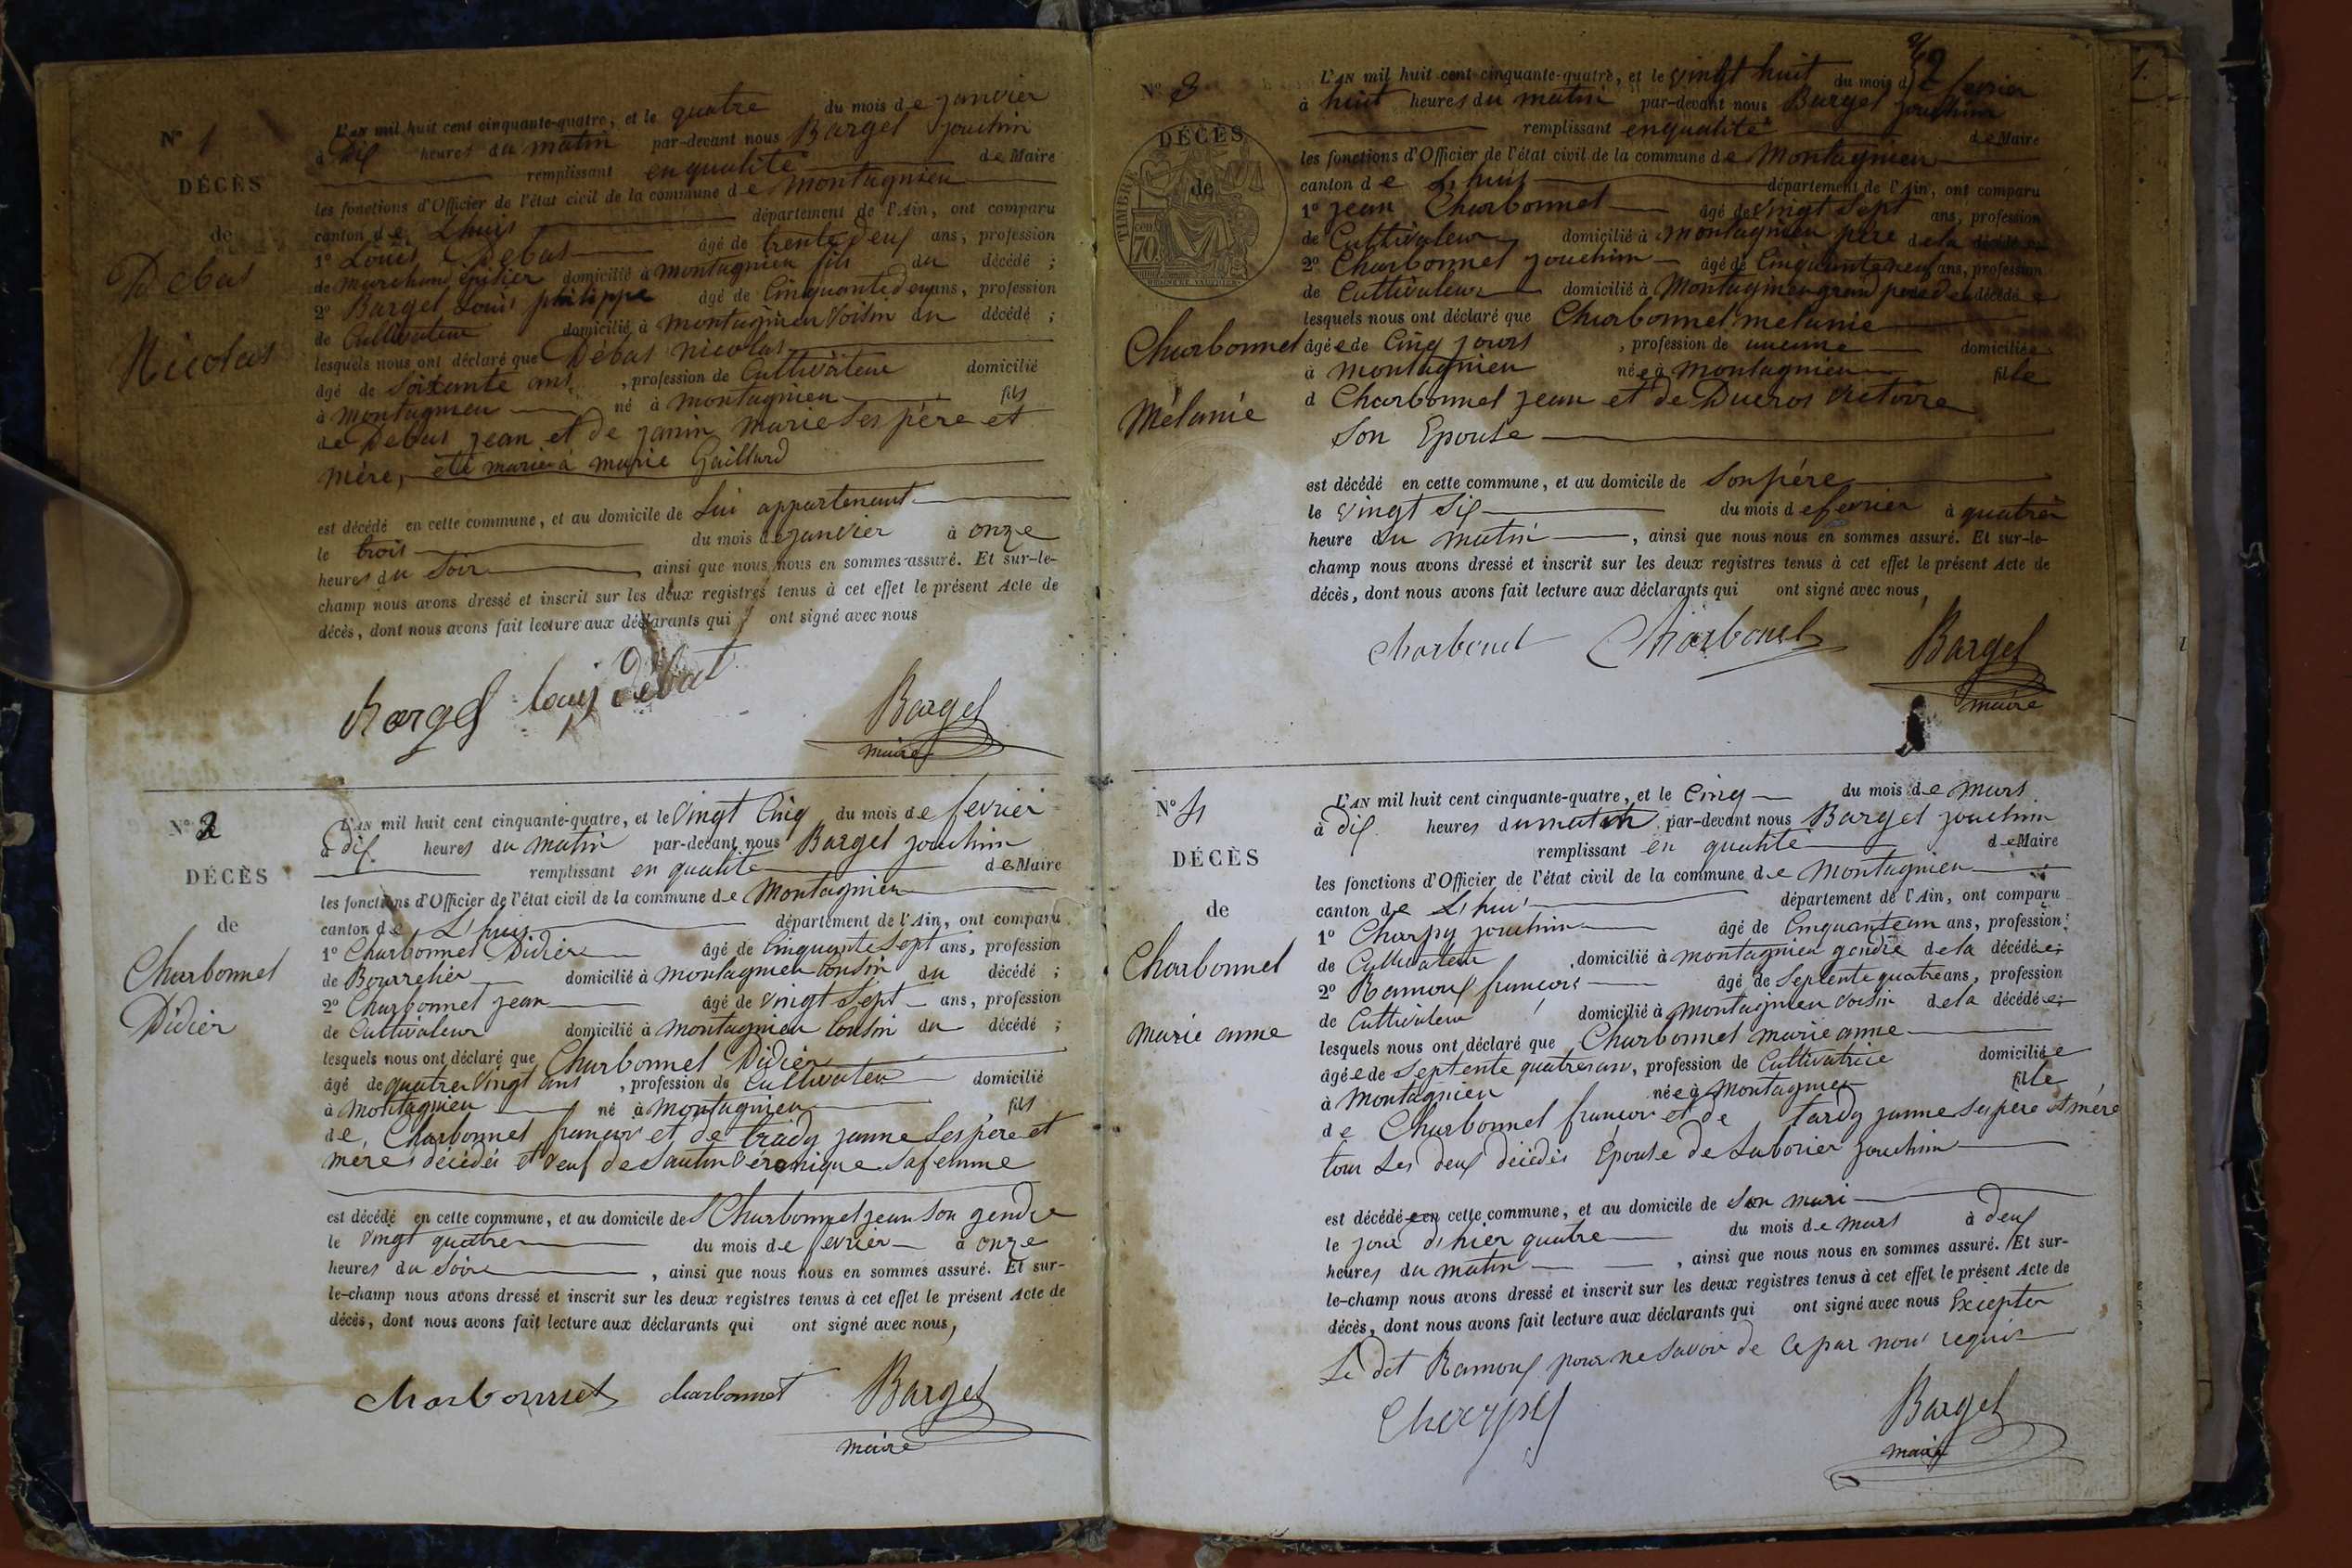 N° 1
DÉCÈS
de
Debas
Nicolas
L'AN mil huit cent cinquante-quatre, et le quatre du mois de janvier
à dix heures du matin par-devant nous Barget jouchin
remplissant en qualité de Maire
les fonctions d'Officier de l'état civil de la commune de montagnieu
canton de Lhuis département de l'Ain, ont comparu
1° Louis Debas âgé de trente deux ans, profession
de marchand Epicier domicilié à montagnieu fils du décédé ;
2° Barget Louis philippe âgé de Cinquante deux ans, profession
de Cultivateur domicilié à montagnieu Voisin du décédé ;
lesquels nous ont déclaré que Débas nicolas
âgé de soixante ans, profession de Cultivateur domicilié
à montagnieu né à montagnieu fils
de Debas jean et de janin marie ses père et
mère, été marié à marie Gaillard
est décédé en cette commune, et au domicile de Lui appartenant
le trois du mois de janvier à onze
heures du Soir, ainsi que nous nous en sommes assuré. Et sur-le-
champ nous avons dressé et inscrit sur les deux registres tenus à cet effet le présent Acte de
décès, dont nous avons fait lecture aux déclarants qui ont signé avec nous
Barget Louis Débat
Barget
maire
N° 2
DÉCÈS
de
Charbonnel
Didier
L'AN mil huit cent cinquante-quatre, et le Vingt Cinq du mois de fevrier
à dix heures du matin par-devant nous Barget jouchim
remplissant en qualité de Maire
les fonctions d'Officier de l'état civil de la commune de Montagnieu
canton de L'huis département de l'Ain, ont comparu
1° Charbonnel Didier âgé de Cinquante Sept ans, profession
de Bourrelier domicilié à montagnieu Cousin du décédé ;
2° Charbonnel jean âgé de Vingt Sept ans, profession
de Cultivateur domicilié à montagnieu Cousin du décédé ;
lesquels nous ont déclaré que Charbonnel Didier
âgé de quatre Vingt ans, profession de Cultivateur domicilié
à montagnieu né à montagnieu fils
de Charbonnel françois et de trady janne Ses père et
mère décédés et Veuf de Sautin Véronique Sa femme
est décédé en cette commune, et au domicile de Charbonnel jean Son gendre
le Vingt quatre du mois de fevrier à onze
heures du Soire, ainsi que nous nous en sommes assuré. Et sur-
le-champ nous avons dressé et inscrit sur les deux registres tenus à cet effet le présent Acte de
décès, dont nous avons fait lecture aux déclarants qui ont signé avec nous,
Charbonnet charbonnet Barget
maire
2
N° 3
DÉCÈS
de
TIMBRE
70
Charbonnel
Mélanie
L'AN mil huit cent cinquante-quatre, et le Vingt huit du mois de fevrier
à huit heures du matin par-devant nous Barget jouchim
remplissant en qualité de Maire
les fonctions d'Officier de l'état civil de la commune de Montagnieu
canton de L'huis département de l'Ain, ont comparu
1° jean Charbonnel âgé de Vingt Sept ans, profession
de Cultivateur domicilié à montagnieu père de la décédée
2° Charbonnel jouchim âgé de Cinquante neuf ans, profession
de Cultivateur domicilié à Montagnieu grand père de décédée
lesquels nous ont déclaré que Charbonnel melanie
âgée de Cinq jours, profession de aucune domiciliée
à montagnieu née à montagnieu fille
d Charbonnel jean et de Ducros Victoire
Son Epouse
est décédé en cette commune, et au domicile de Son père
le Vingt Six du mois de fevrier à quatre
heure du matin, ainsi que nous nous en sommes assuré. Et sur-le-
champ nous avons dressé et inscrit sur les deux registres tenus à cet effet le présent Acte de
décès, dont nous avons fait lecture aux déclarants qui ont signé avec nous,
Charbonel Charbonel Barget
maire
N° 4
DÉCÈS
de
Charbonnel
marie anne
L'AN mil huit cent cinquante-quatre, et le Cinq du mois de mars
à dix heures du matin par-devant nous Barget jouchim
remplissant en qualité de Maire
les fonctions d'Officier de l'état civil de la commune de Montagnieu
canton de L'hui département de l'Ain, ont comparu
1° Charpy jouchim âgé de Cinquante un ans, profession
de Cultivateur domicilié à montagnieu gendre de la décédée ;
2° Ramoux françois âgé de Septente quatre ans, profession
de Cultivateur domicilié à montagnieu Voisin de la décédée ;
lesquels nous ont déclaré que Charbonnel marie anne
âgée de Septente quatre ans, profession de Cultivatrice domiciliée
à Montagnieu née à Montagnieu fille
de Charbonnel françois et de tardy janne Ses père et mère
tous Les deux décédés Epouse de Laborier jouchim
est décédée en cette commune, et au domicile de Son mari
le jour d'hier quatre du mois de mars à deux
heures du matin, ainsi que nous nous en sommes assuré. Et sur-
le-champ nous avons dressé et inscrit sur les deux registres tenus à cet effet le présent Acte de
décès, dont nous avons fait lecture aux déclarants qui ont signé avec nous Excepter
Le dit Ramoux pour ne Savoir de Ce par nous requis
Charpy
Barget
maire